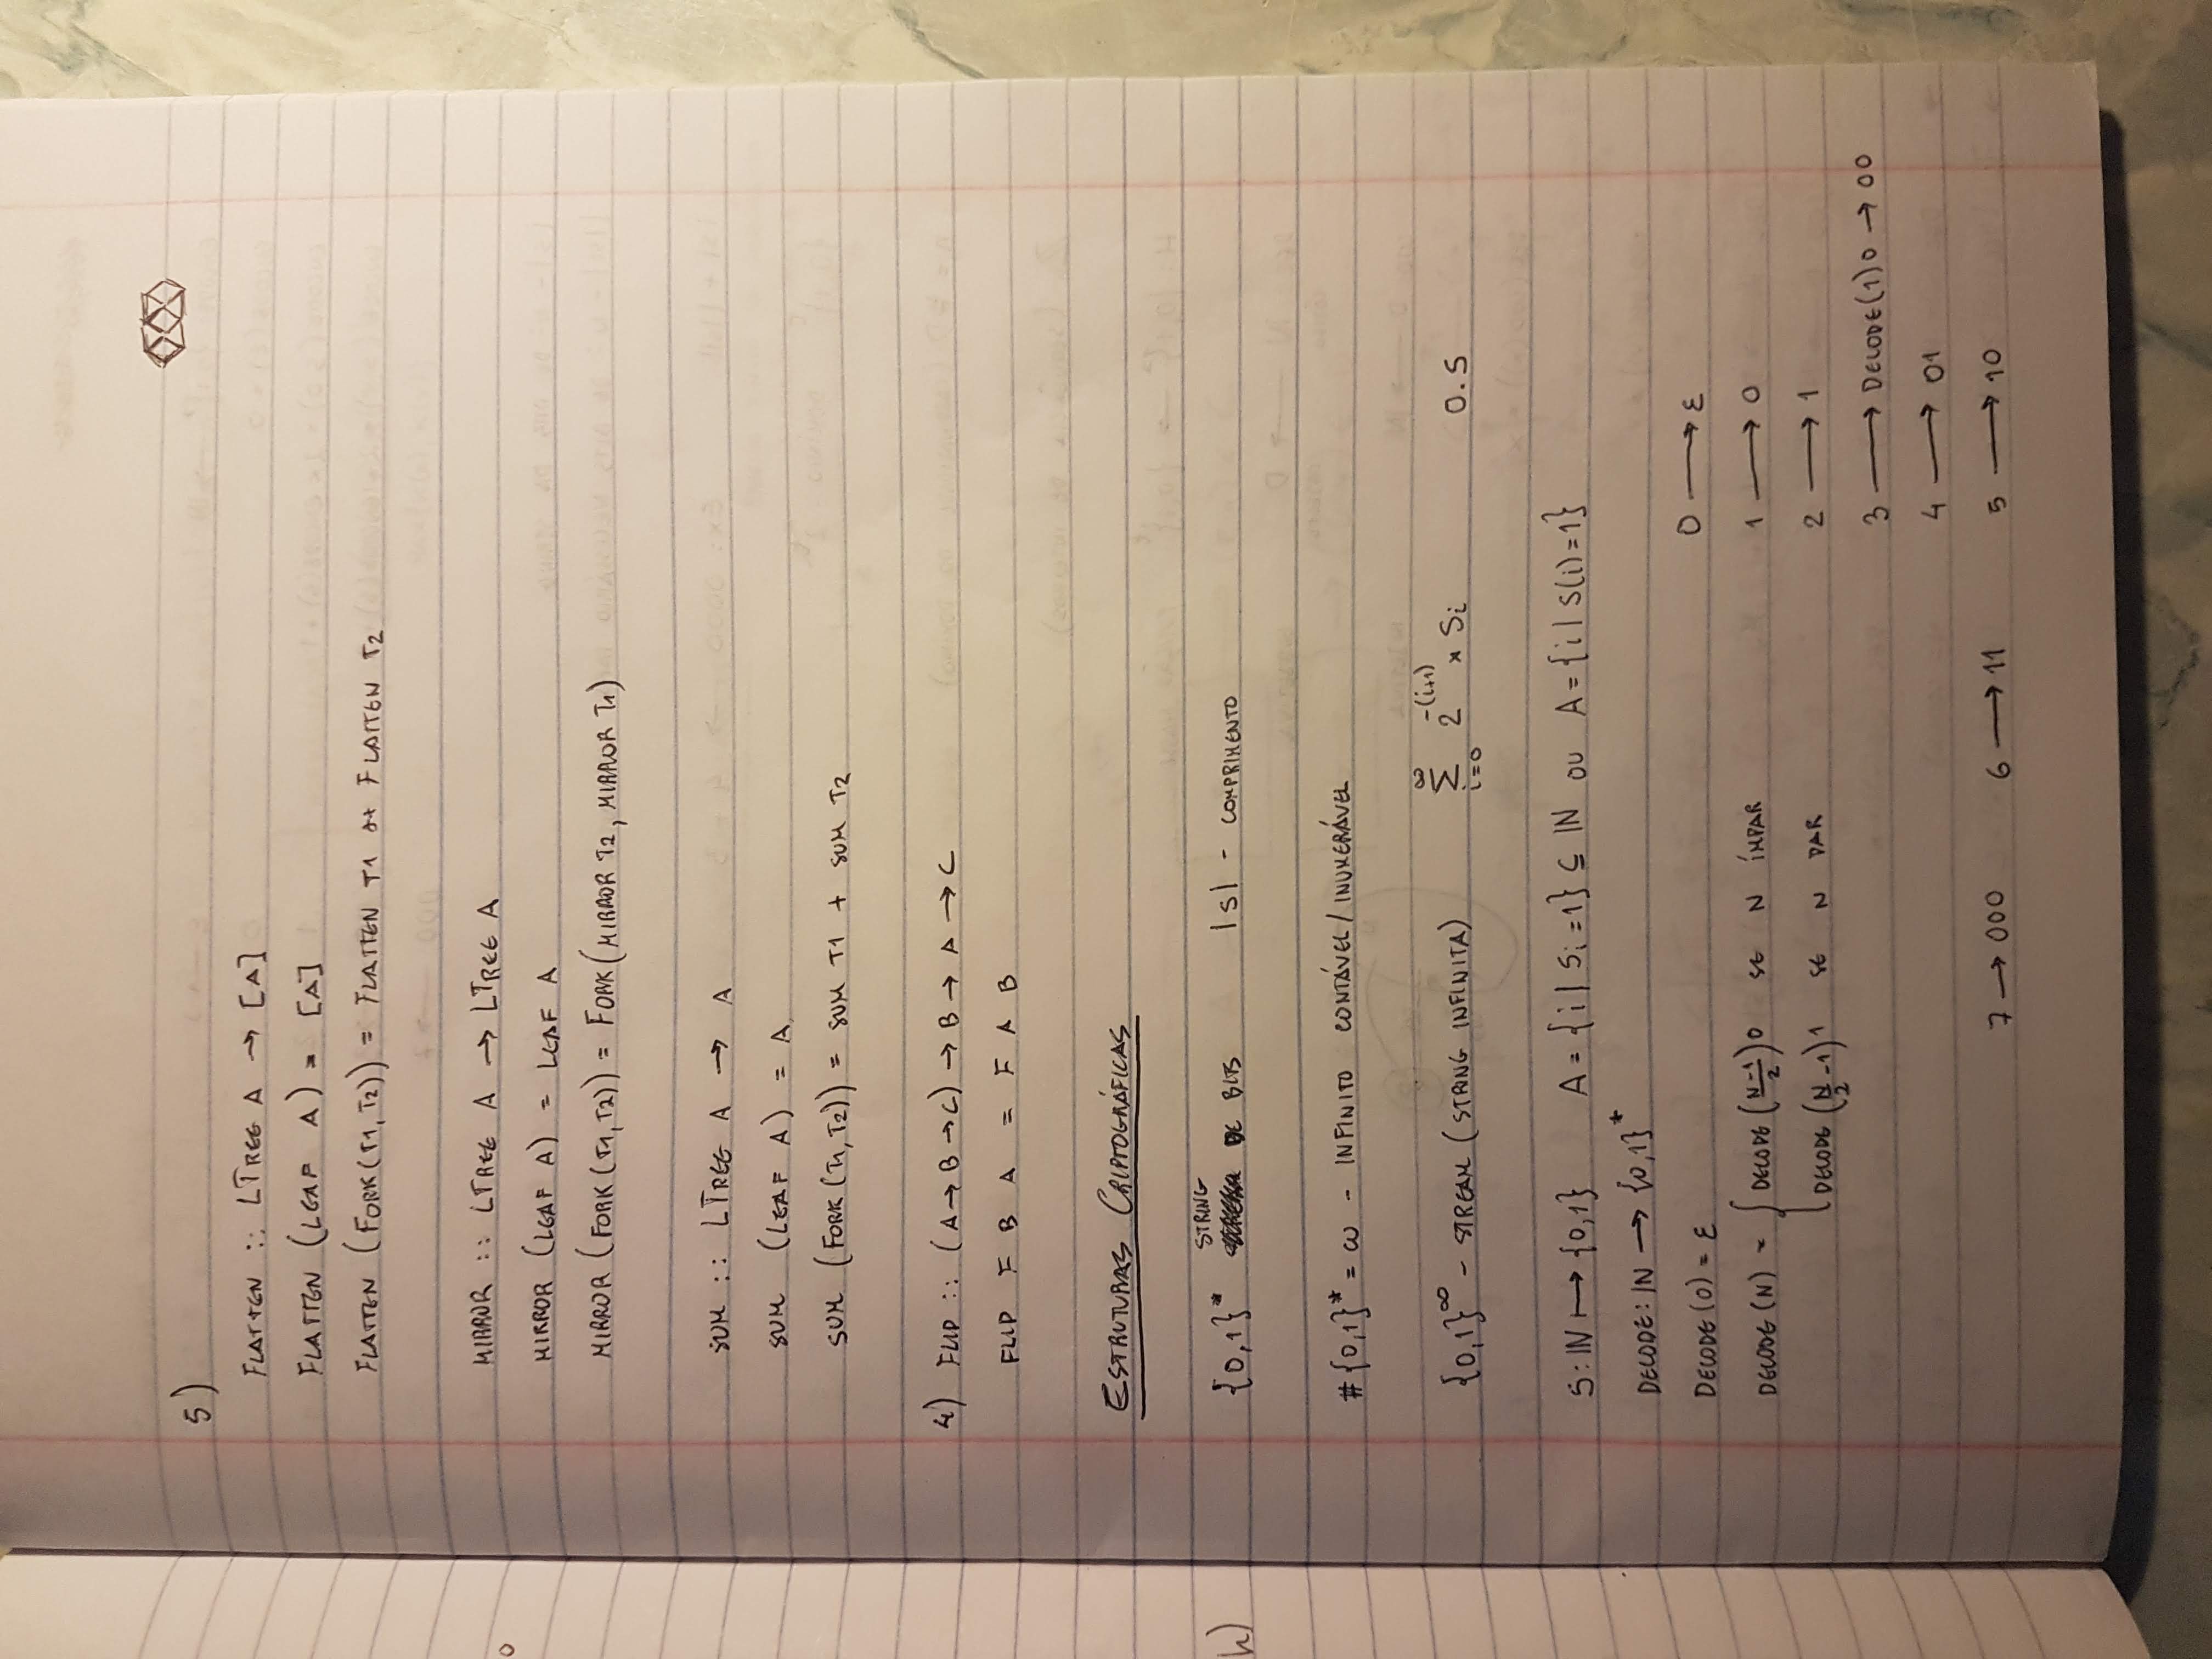 5)
FLATTEN :: LTREE A → [A]
FLATTEN (LEAF A) = [A]
FLATTEN (FORK(T1, T2)) = FLATTEN T1 ++ FLATTEN T2
MIRROR :: LTREE A → LTREE A
MIRROR (LEAF A) = LEAF A
MIRROR (FORK (T1, T2)) = FORK (MIRROR T2, MIRROR T1)
SUM :: LTREE A → A
SUM (LEAF A) = A
SUM (FORK (T1, T2)) = SUM T1 + SUM T2
4) FLIP :: (A → B → C) → B → A → C
FLIP F B A = F A B
ESTRUTURAS CRIPTOGRÁFICAS
{0,1}* STRING DE BITS |S| - COMPRIMENTO
#{0,1}* = ω - INFINITO CONTÁVEL / INUMERÁVEL
{0,1}^∞ - STREAM (STRING INFINITA) ∑_{i=0}^{∞} 2^{-(i+1)} × Si 0.S
S: IN ↦ {0,1} A = {i | Si = 1} ⊆ IN OU A = {i | S(i) = 1}
DECODE: IN → {0,1}*
DECODE (0) = ε 0 → ε
DECODE (N) = { DECODE (N-1/2) 0 SE N ÍMPAR 1 → 0
DECODE (N/2 -1) 1 SE N PAR 2 → 1
3 → DECODE(1) 0 → 00
4 → 01
7 → 000 6 → 11 5 → 10
h)